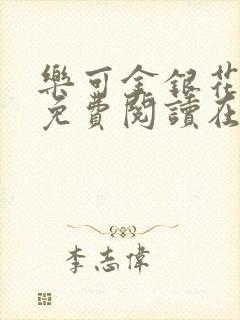 樂可金銀花
免費閱讀在
李志偉